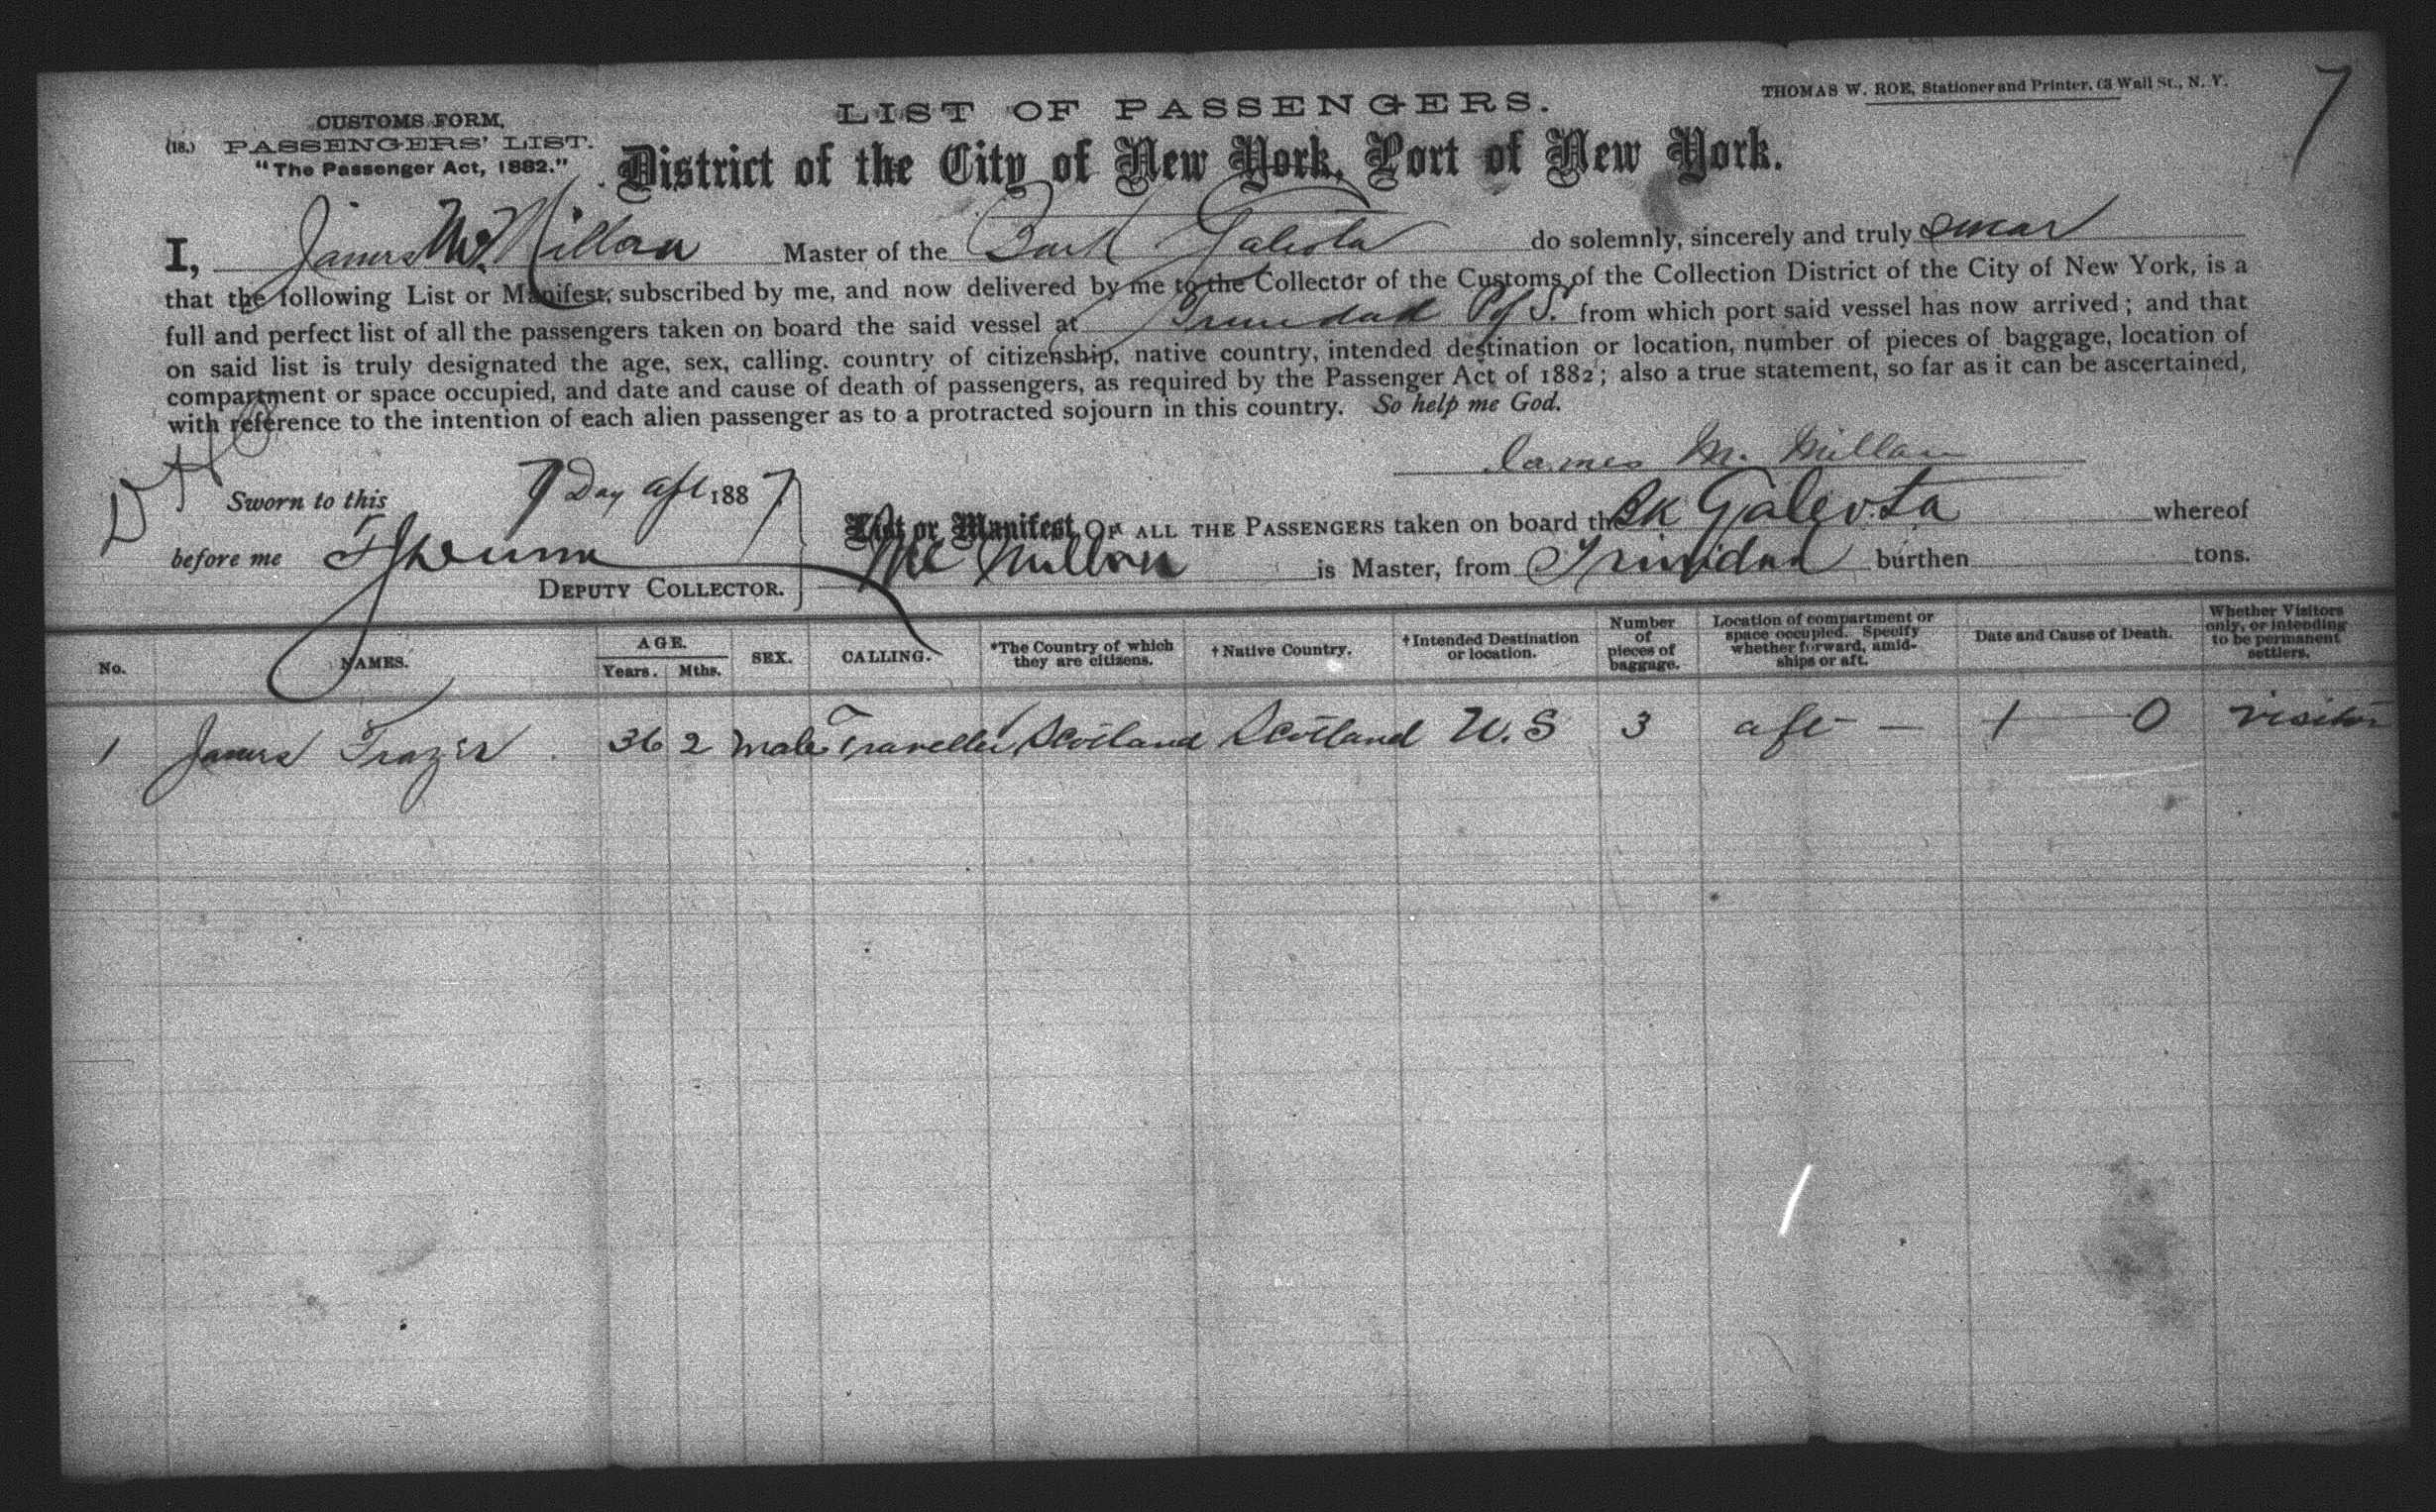 THOMAS W. ROE, Stationer and Printer, 63 Wall St., N. Y.
7
CUSTOMS FORM,
(18.) PASSENGERS' LIST.
"The Passenger Act, 1882."
LIST OF PASSENGERS.
District of the City of New York, Port of New York.
I, James McMillan Master of the Bark Galeota do solemnly, sincerely and truly swear
that the following List or Manifest, subscribed by me, and now delivered by me to the Collector of the Customs of the Collection District of the City of New York, is a
full and perfect list of all the passengers taken on board the said vessel at Trinidad P of S. from which port said vessel has now arrived; and that
on said list is truly designated the age, sex, calling, country of citizenship, native country, intended destination or location, number of pieces of baggage, location of
compartment or space occupied, and date and cause of death of passengers, as required by the Passenger Act of 1882; also a true statement, so far as it can be ascertained,
with reference to the intention of each alien passenger as to a protracted sojourn in this country. So help me God.
James McMillan
Sworn to this 7 Day apl 1887
before me
DEPUTY COLLECTOR.
List or Manifest OF ALL THE PASSENGERS taken on board the Bk Galeota whereof
McMillan is Master, from Trinidad burthen tons.
No. NAMES. AGE. Years. Mths. SEX. CALLING. *The Country of which they are citizens. †Native Country. †Intended Destination or location. Number of pieces of baggage. Location of compartment or space occupied. Specify whether forward, amidships or aft. Date and Cause of Death. Whether Visitors only, or intending to be permanent settlers.
1 James Frazer 36 2 Male Traveller Scotland Scotland U.S 3 aft — 1 — 0 visitor